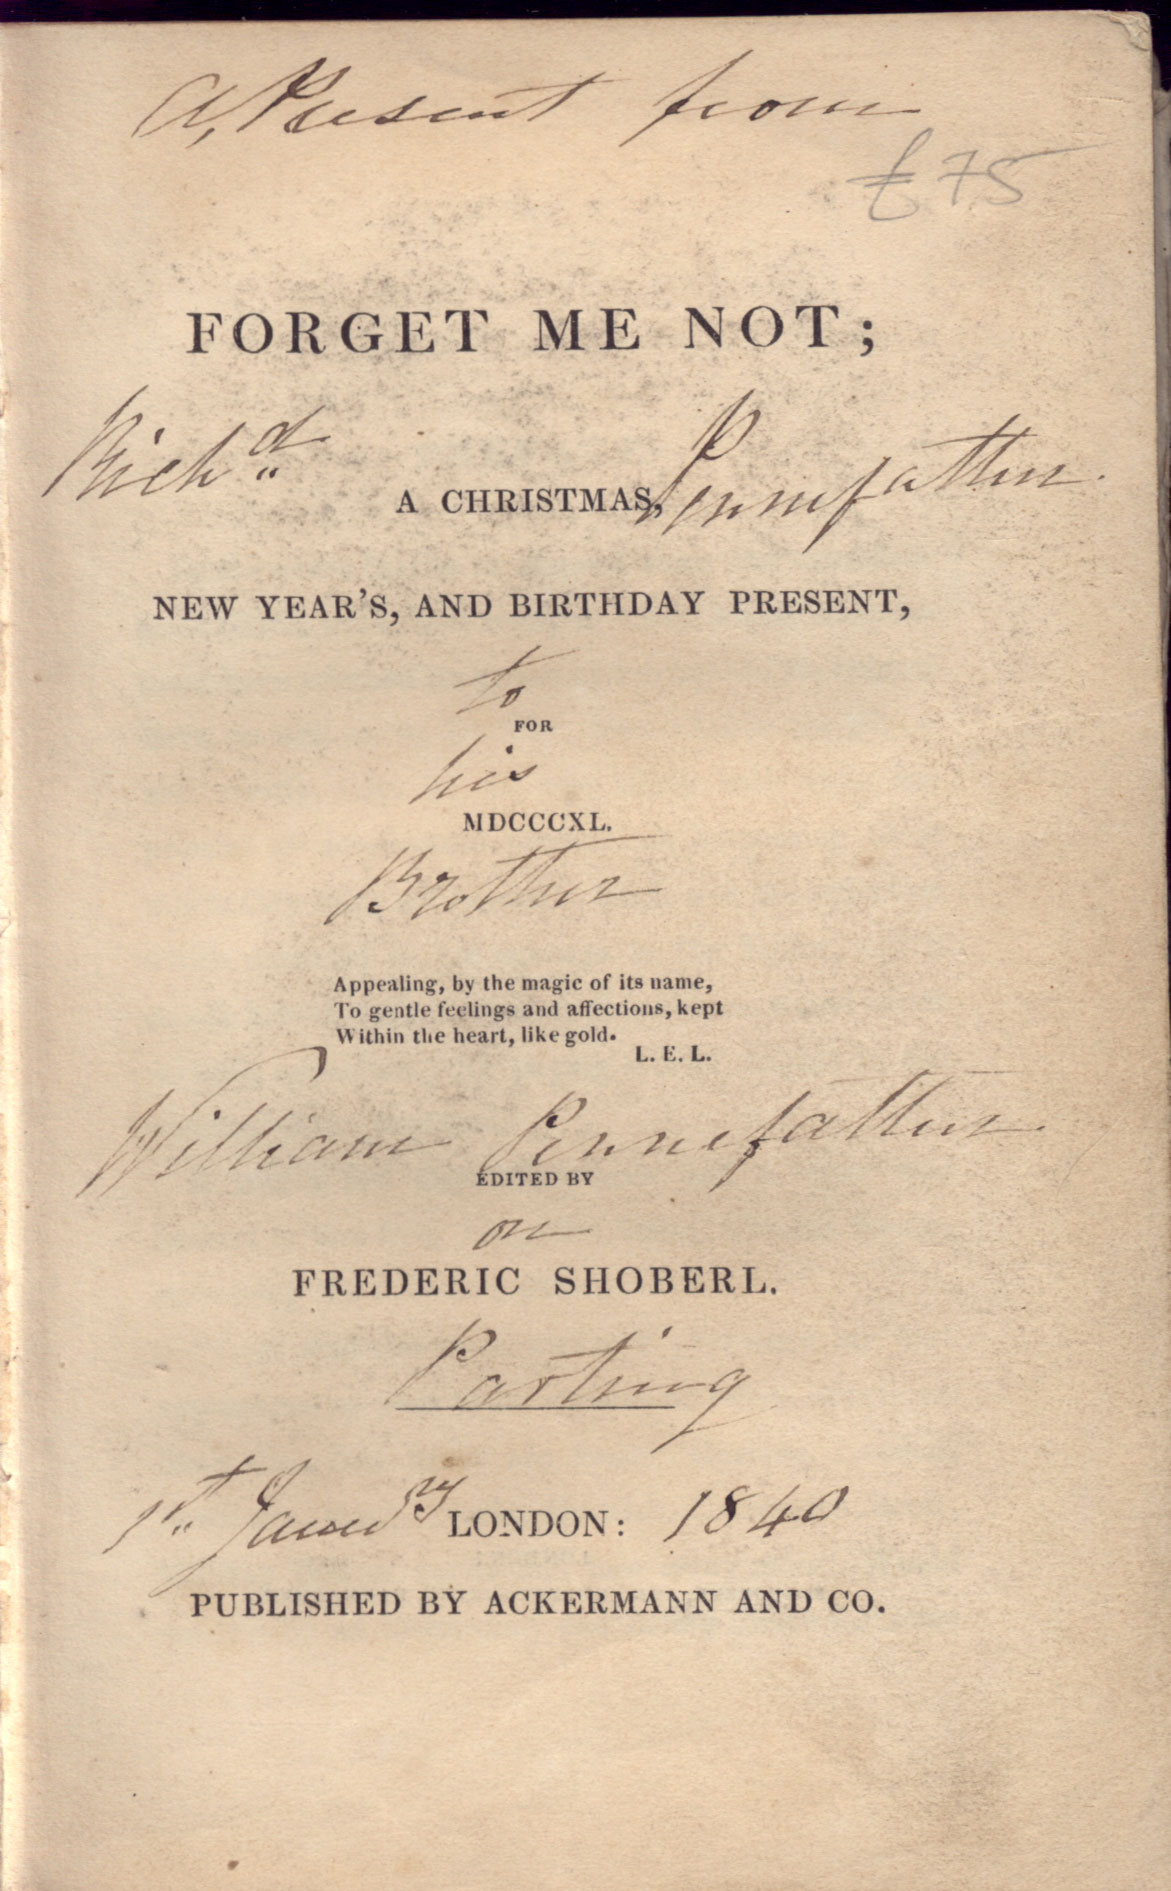 A, Present from
£75
FORGET ME NOT;
Richd Pennefather.
A CHRISTMAS,
NEW YEAR'S, AND BIRTHDAY PRESENT,
to
FOR
his
MDCCCXL.
Brother
Appealing, by the magic of its name,
To gentle feelings and affections, kept
Within the heart, like gold.
L. E. L.
William Pennefather.
EDITED BY
on
FREDERIC SHOBERL.
Parting
1st Janury 1840
LONDON:
PUBLISHED BY ACKERMANN AND CO.